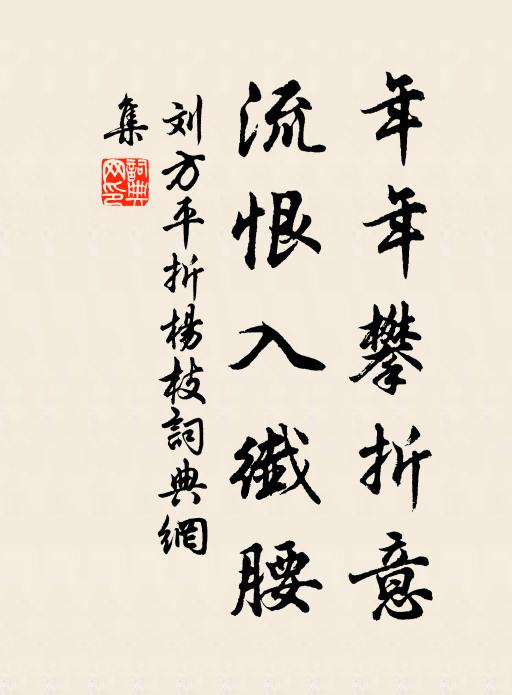 年年攀折意
流恨入纖腰
刘方平折楊枝詞典網
集
詞典
网印